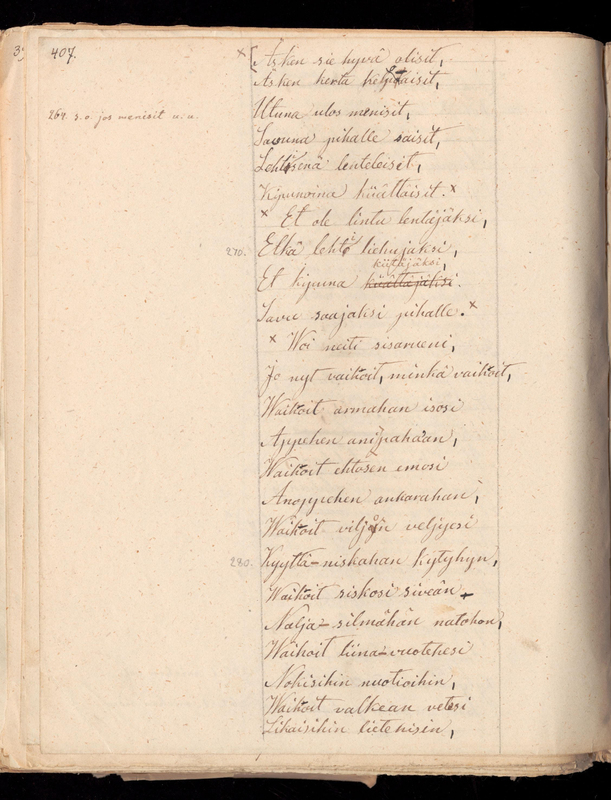 407.
× [Asken sie hyvä olisit,
Asken kerta kelpoaisit,
Utuna ulos menisit,
264. s.o jos menisit u.u.
Sauuna pihalle saisit,
Lehtisenä lenteleisit,
Kipunoina küättäisit.×
× Et ole lintu lentäjäksi,
270. Etkä lehti liehujaksi,
kiitäjäksi,
Et kipuna küättäjäksi.
Savu saajaksi pihalle.×
× Woi neiti sisarueni,
Jo nyt vaihoit, minkä vaihoit,
Waihoit armahan isosi
Appehen anipahaan,
Waihoit ehtosen emosi
Anoppehen ankarahan,
Waihoit viljon veljyesi
280. Kyyttä-niskahan kytyhyn,
Waihoit siskosi siveän
Näljä-silmähän natohon,
Waihoit liina-vuotehesi
Nokisihin nuotioihin,
Waihoit valkean vetesi
Likaisihin lietehisin,